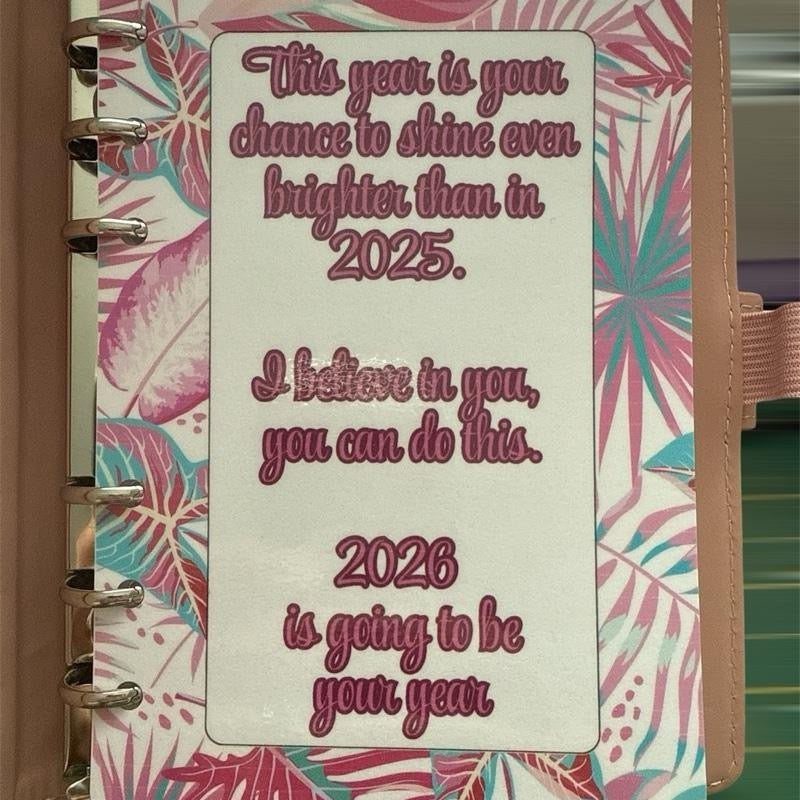 This year is your
chance to shine even
brighter than in
2025.
I believe in you,
you can do this.
2026
is going to be
your year